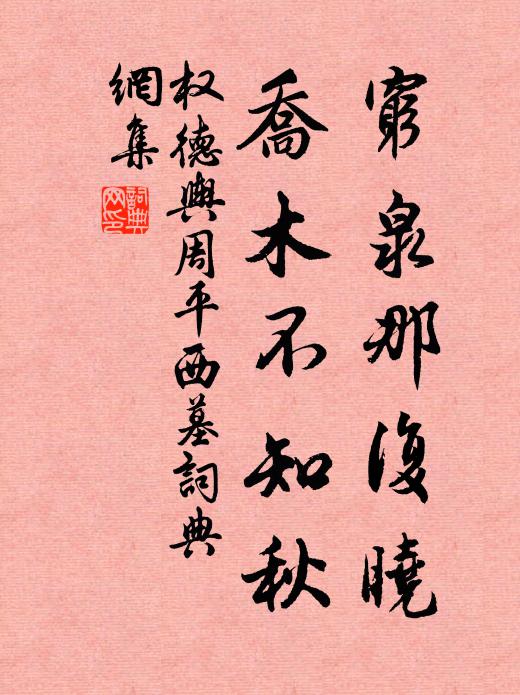 窮泉那復曉
喬木不知秋
权德輿周平西墓詞典
網集
詞典
网印